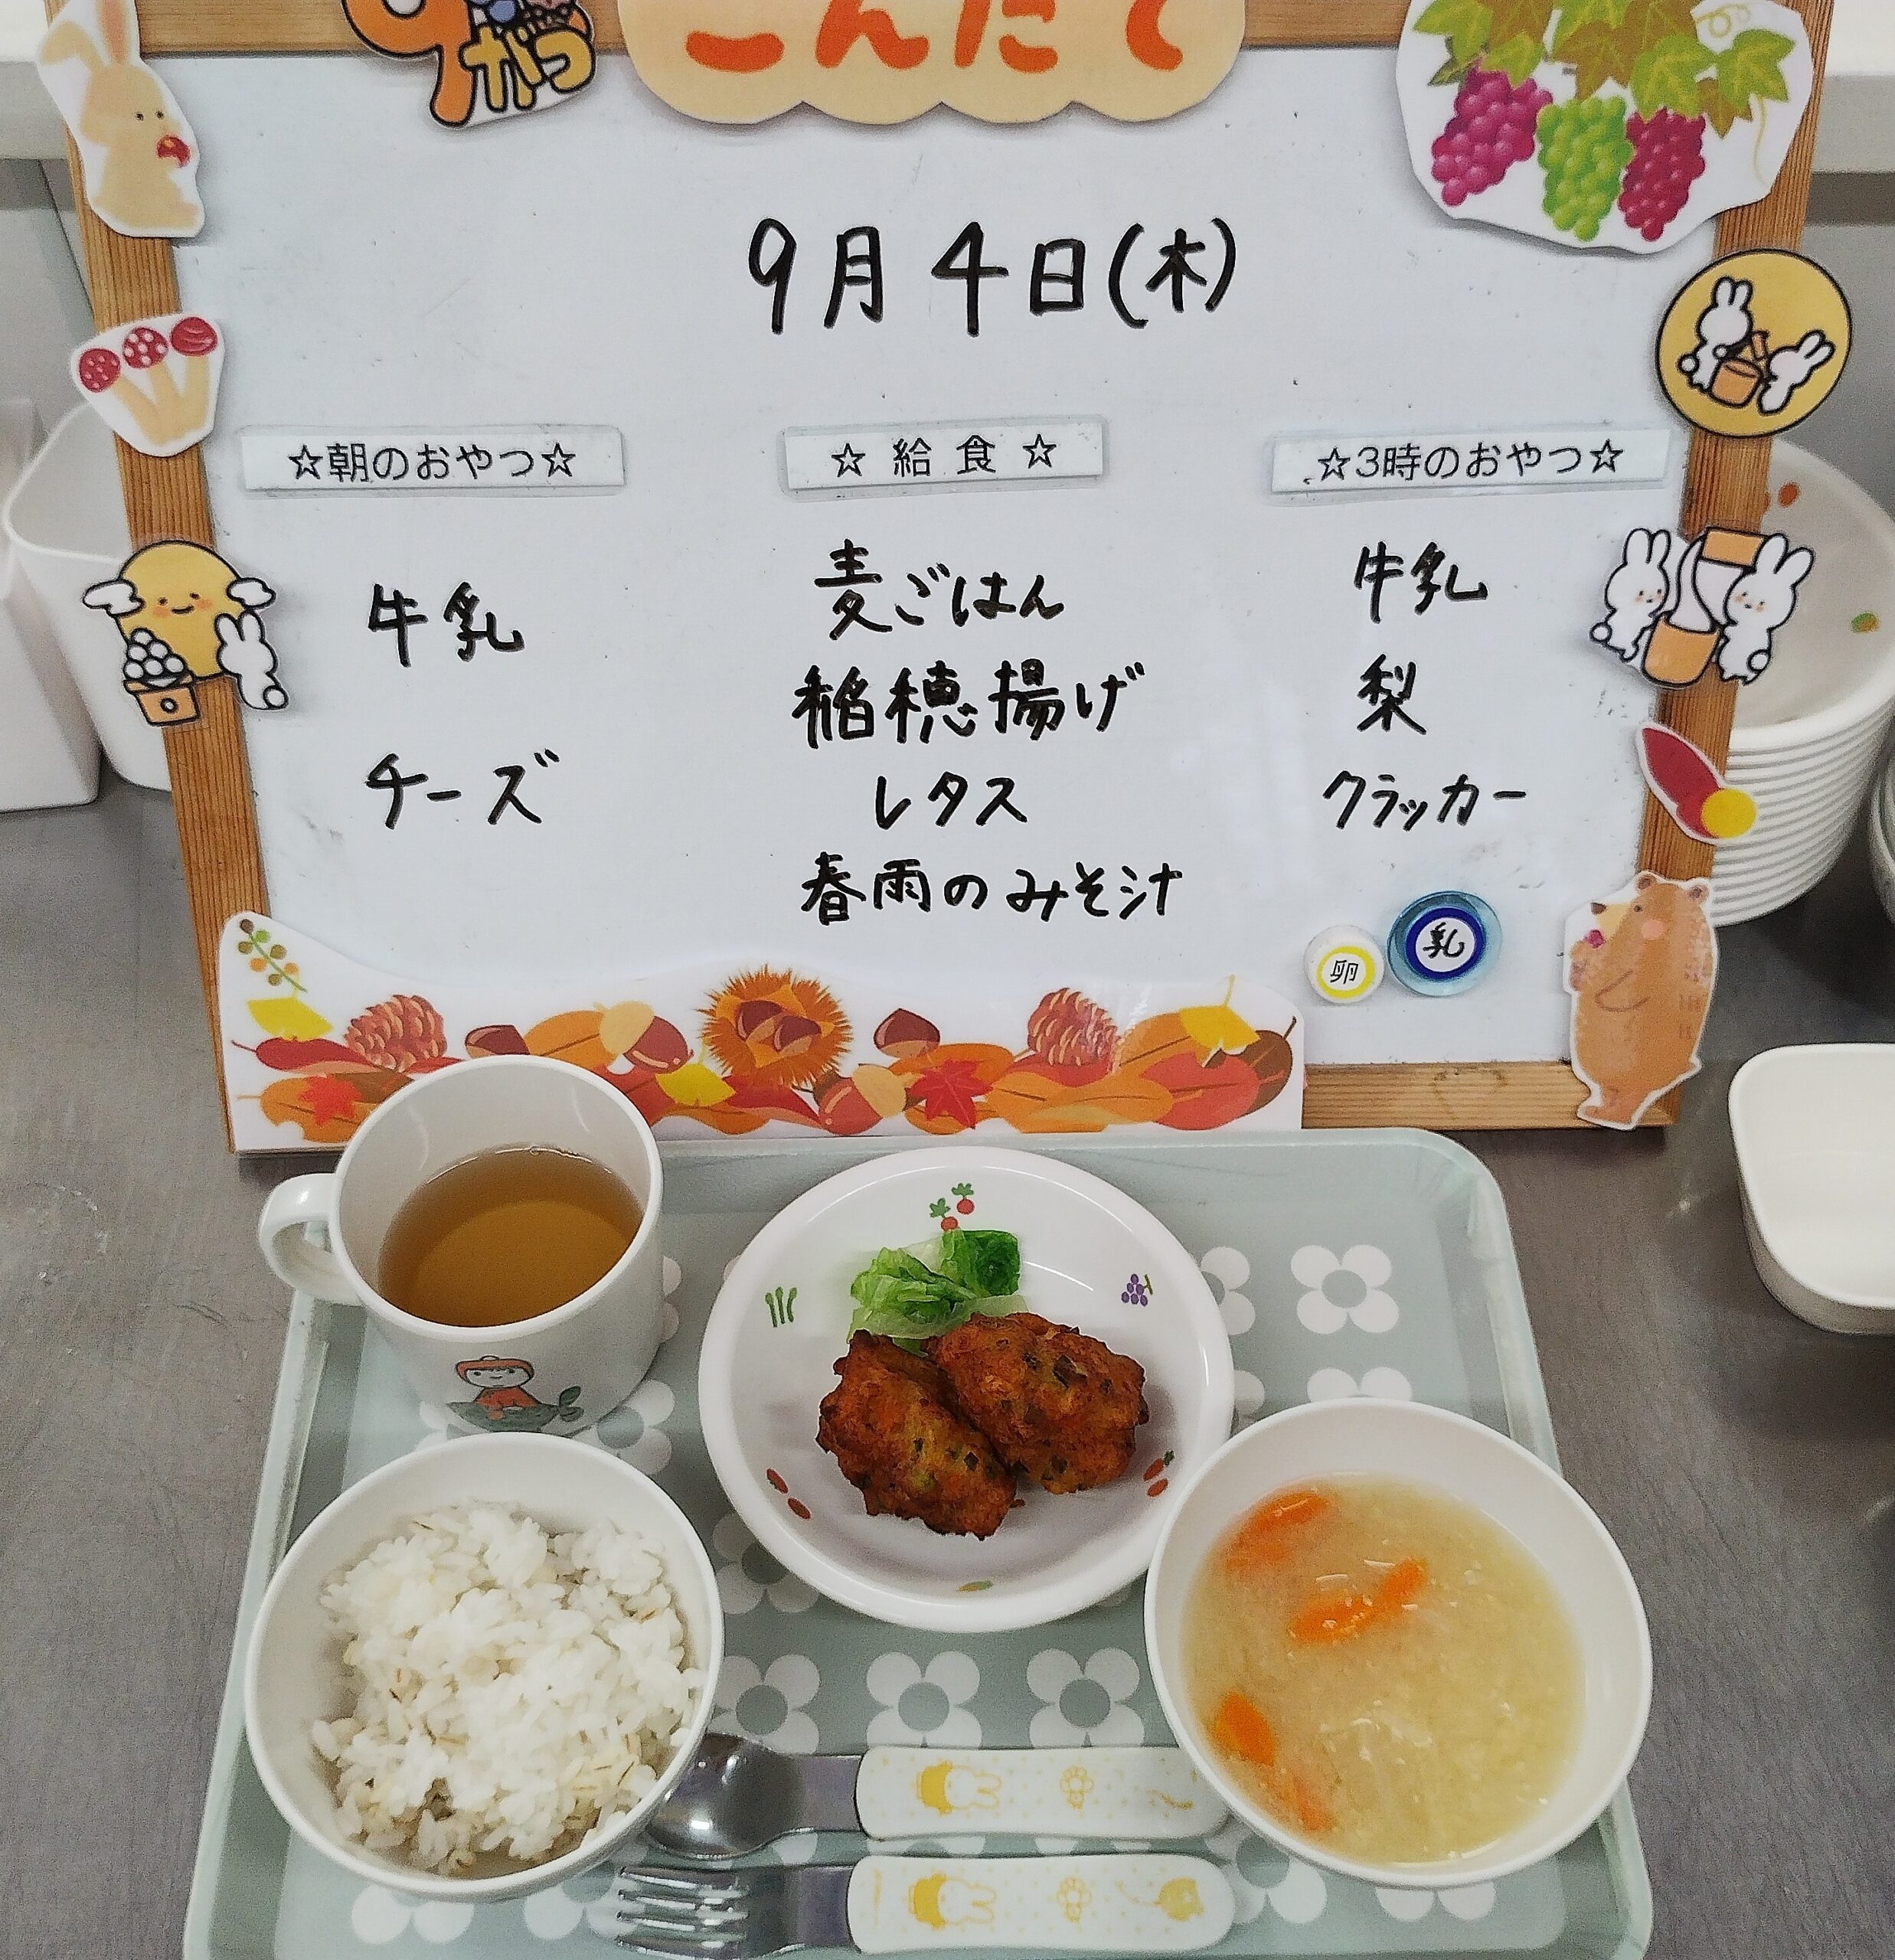 9がつ
こんだて
9月4日(木)
☆朝のおやつ☆
牛乳
チーズ
☆給食☆
麦ごはん
稲穂揚げ
レタス
春雨のみそ汁
☆3時のおやつ☆
牛乳
梨
クラッカー
卵
乳